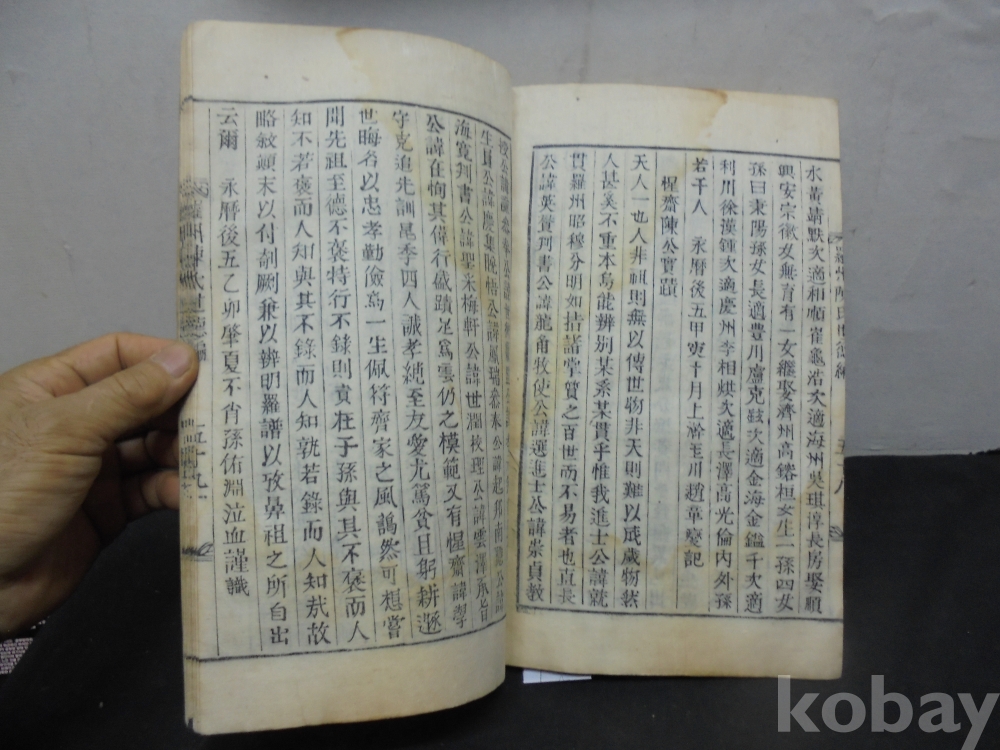 水黃靖默次適相頓崔龜浩次適海州吳琪淳長房娶順
興安宗徽女無育有一女繼娶濟州高鎔桓女生二孫四女
孫曰東陽孫女長適豊川盧克鉉次適金海金鎰千次適
利川徐漢鍾次適慶州李相烘次適長澤高光倫內外孫
若干人 永曆後五甲寅十月上澣玉川趙章燮記
惺齋陳公實蹟
天人一也人非祖則無以傳世物非天則難以成歲物然
人甚奚不重本烏能辨別某系某貫乎惟我進士公諱就
貫羅州昭穆分明如指諸掌質之百世而不易者也直長
公諱英賛判書公諱龍角牧使公諱選進士公諱崇貞敎
生員公諱慶集晩惜公諱鳳瑞慕
海寛判書公諱聖采梅軒公諱世潤校理公諱雲澤
公諱在恂其偉行盛蹟足爲雲仍之模範又有惺齋諱學
守克追先訓昆季四人誠孝純至友愛尤篤貧且躬耕遯
世晦名以忠孝勤儉爲一生佩符齊家之風藹然可想嘗
聞先祖至德不褒特行不錄則責在子孫與其不褒而人
知不若褒而人知與其不錄而人知孰若錄而人知哉故
略敍顚末以付剞劂兼以辨明羅譜以攷鼻祖之所自出
云爾 永曆後五乙卯肇夏不肖孫佑淵泣血謹識
五十八
kobay